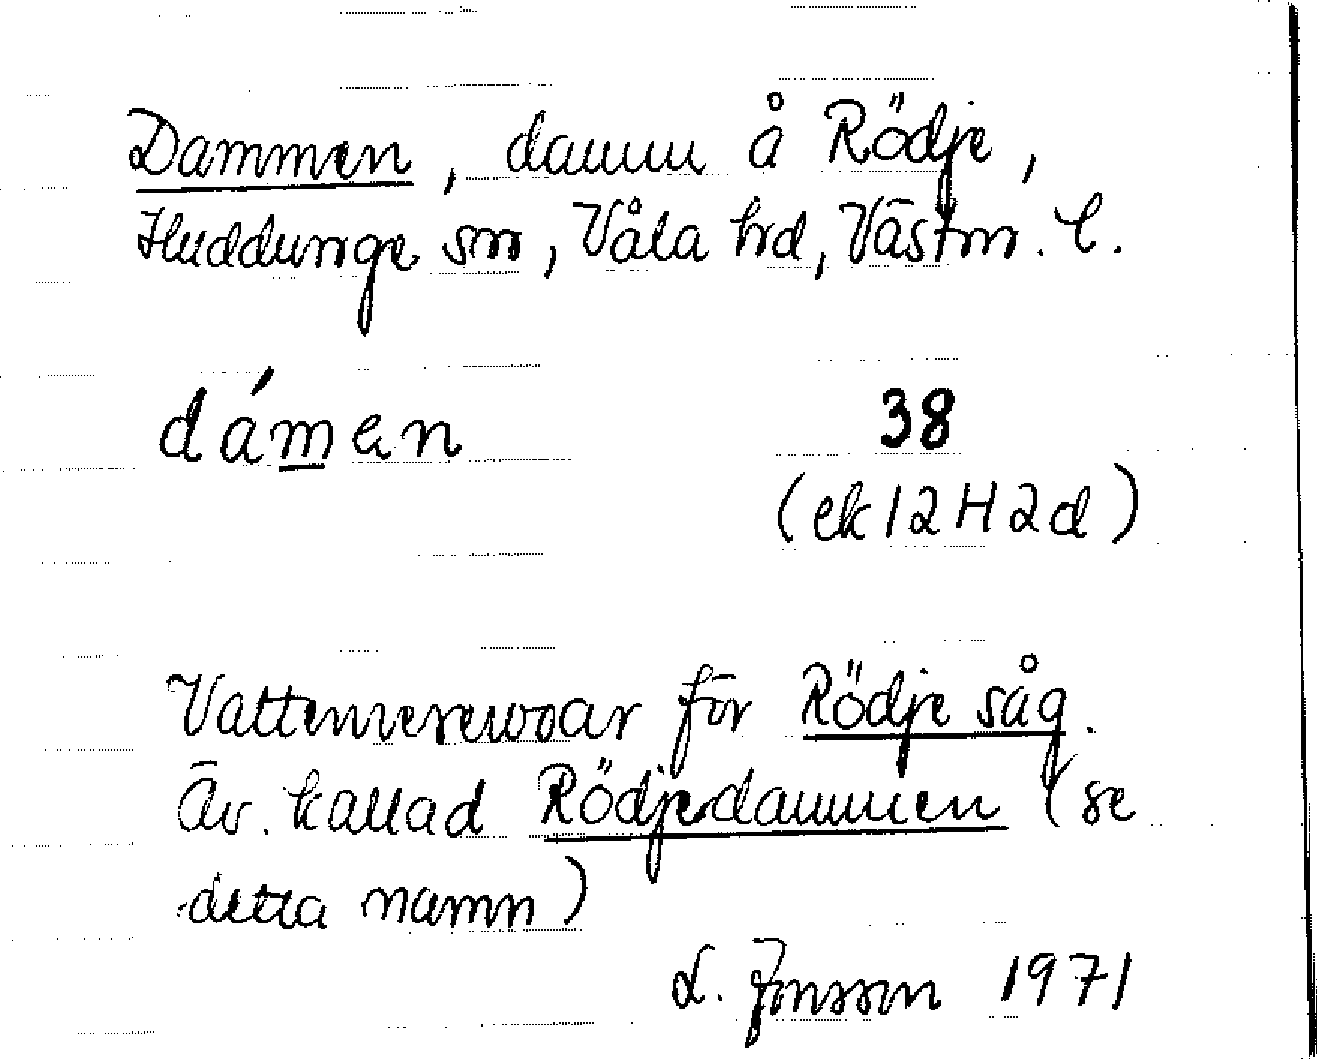 Dammen, damm å Rödje,
Huddunge sn, Våla hd, Västm. l.
dámen
38
(ek 12 H 2 d)
Vattenreservoar för Rödje såg.
Äv. kallad Rödjedammen (se
detta namn)
L. Jonsson 1971